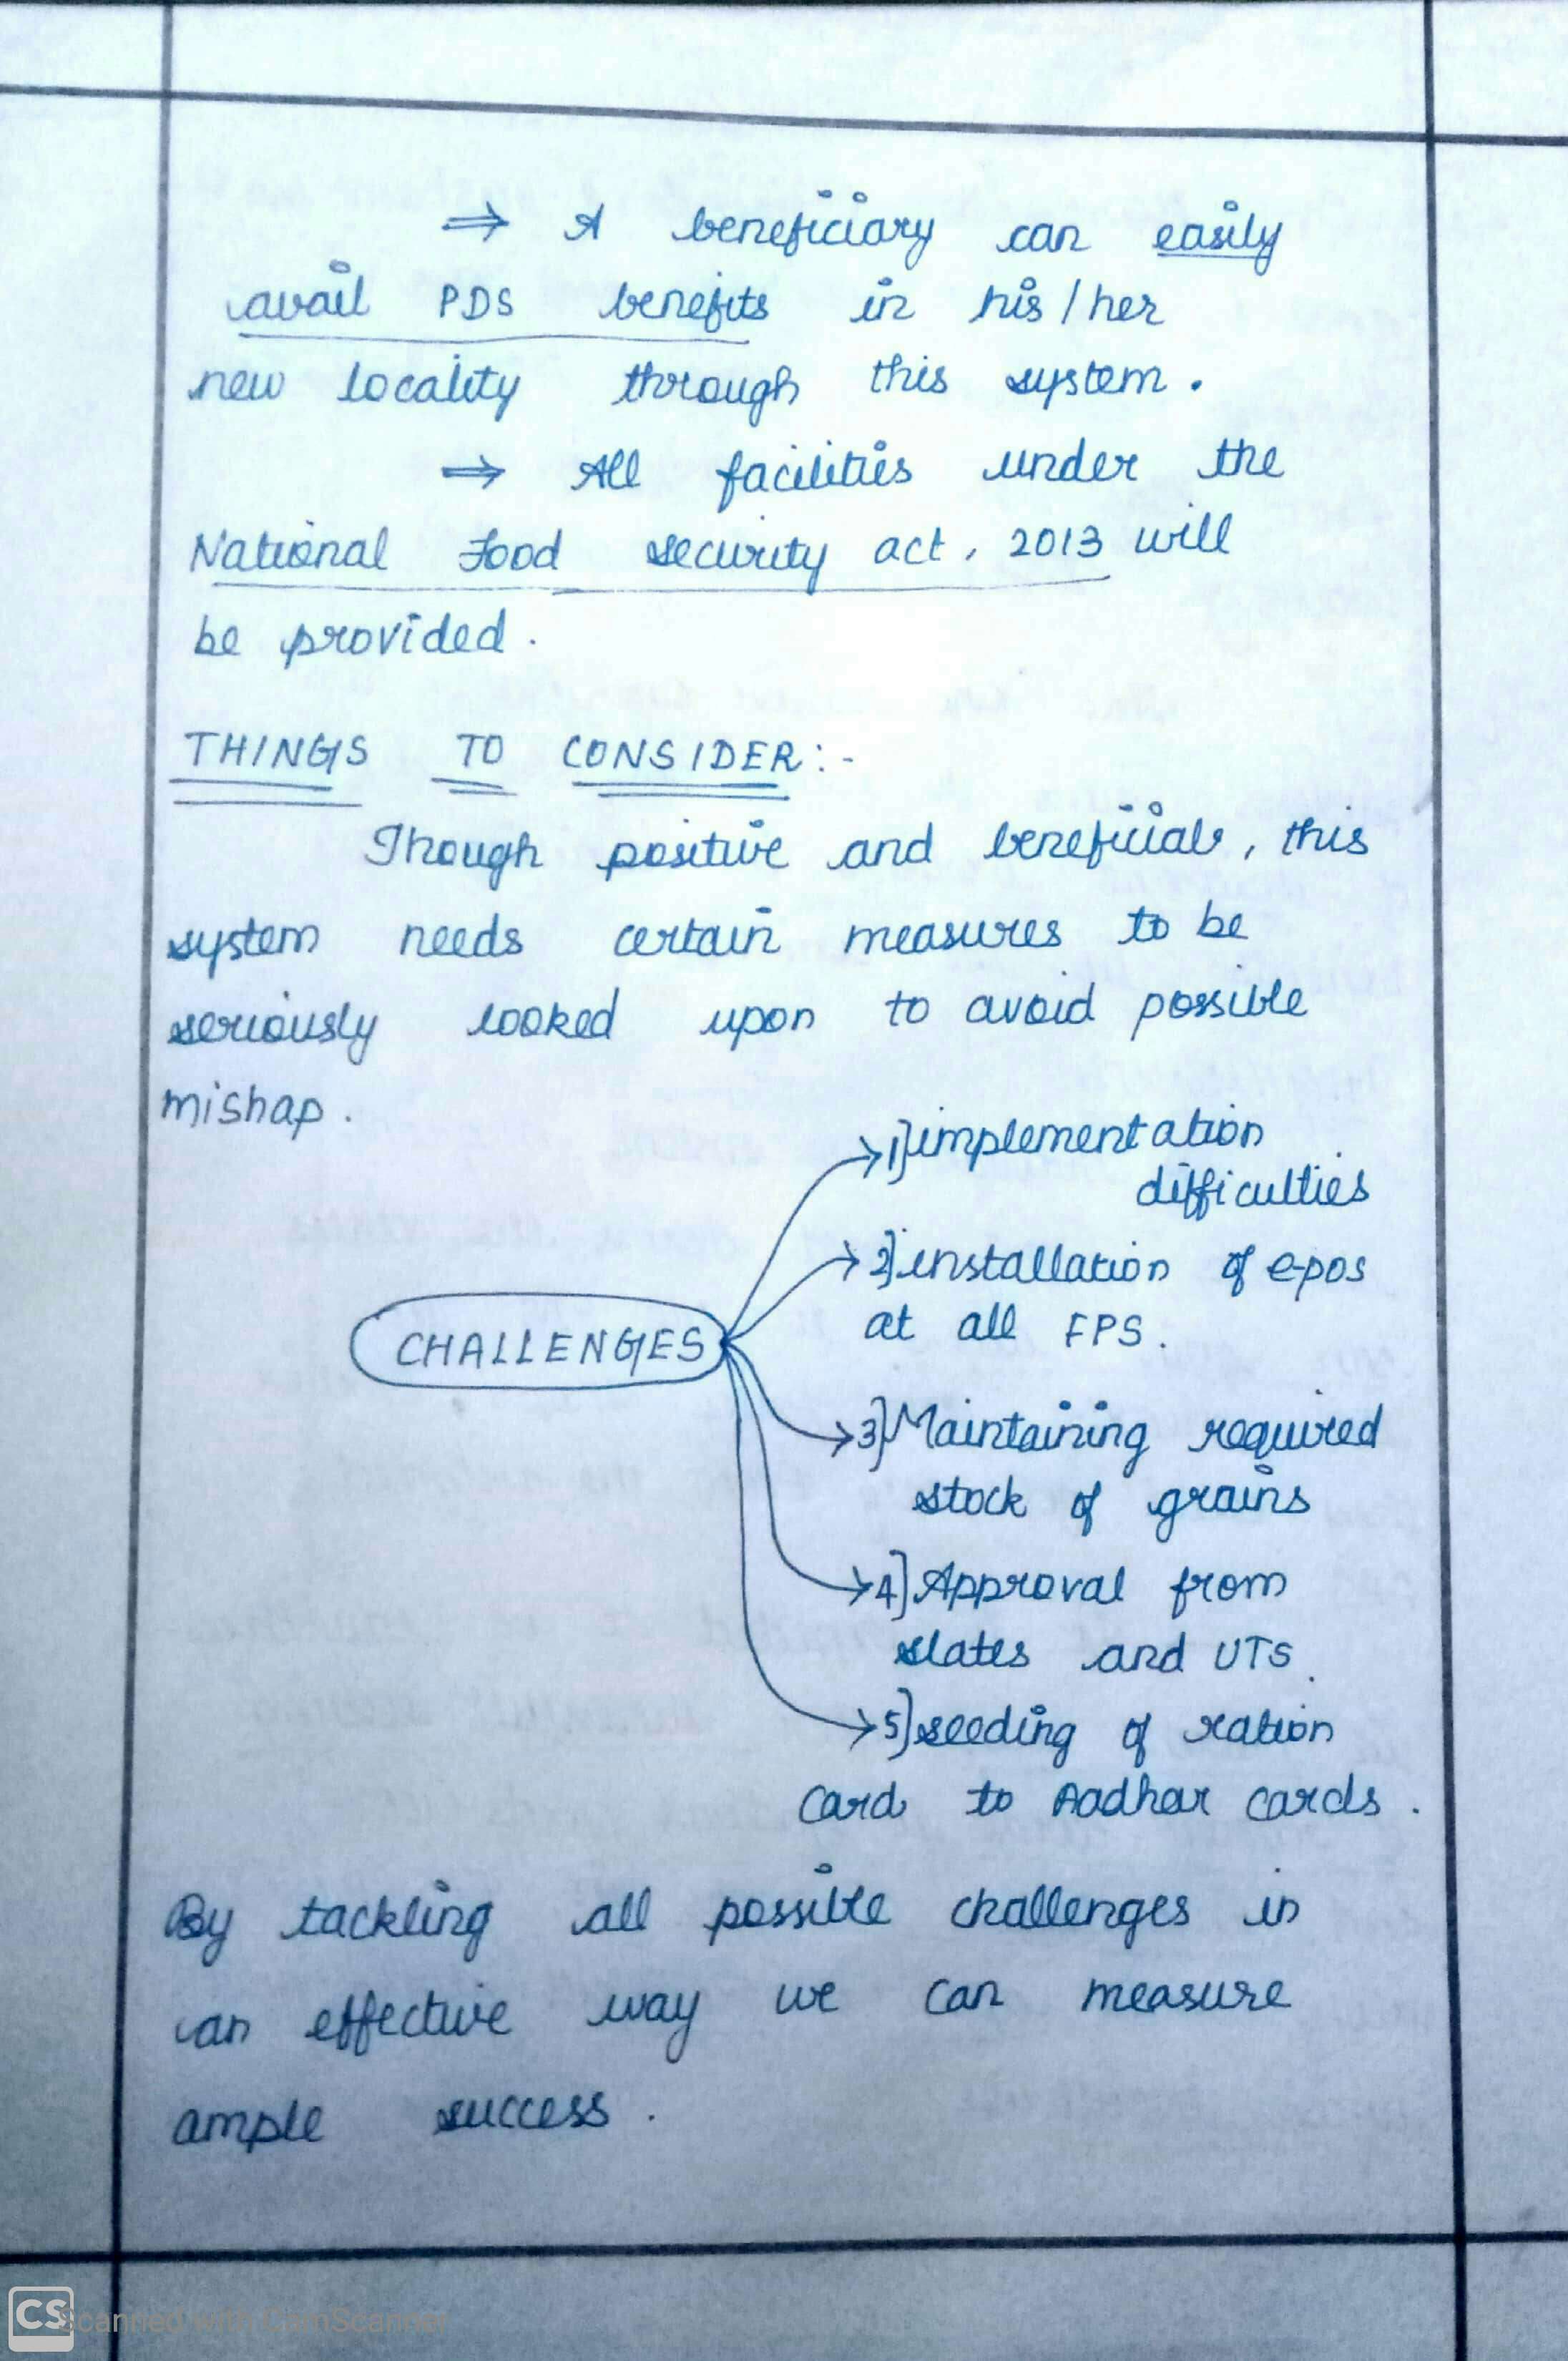 ⇒ A beneficiary can easily
avail PDS benefits in his/her
new locality through this system.
⇒ All facilities under the
National Food security act, 2013 will
be provided.
THINGS TO CONSIDER:-
Though positive and beneficial, this
system needs certain measures to be
seriously looked upon to avoid possible
mishap.
1] implementation
difficulties
2] installation of e-pos
at all FPS.
CHALLENGES
3] Maintaining required
stock of grains
4] Approval from
states and UTS.
5] seeding of ration
card to Aadhar cards.
By tackling all possible challenges in
an effective way we can measure
ample success.
CS Scanned with CamScanner